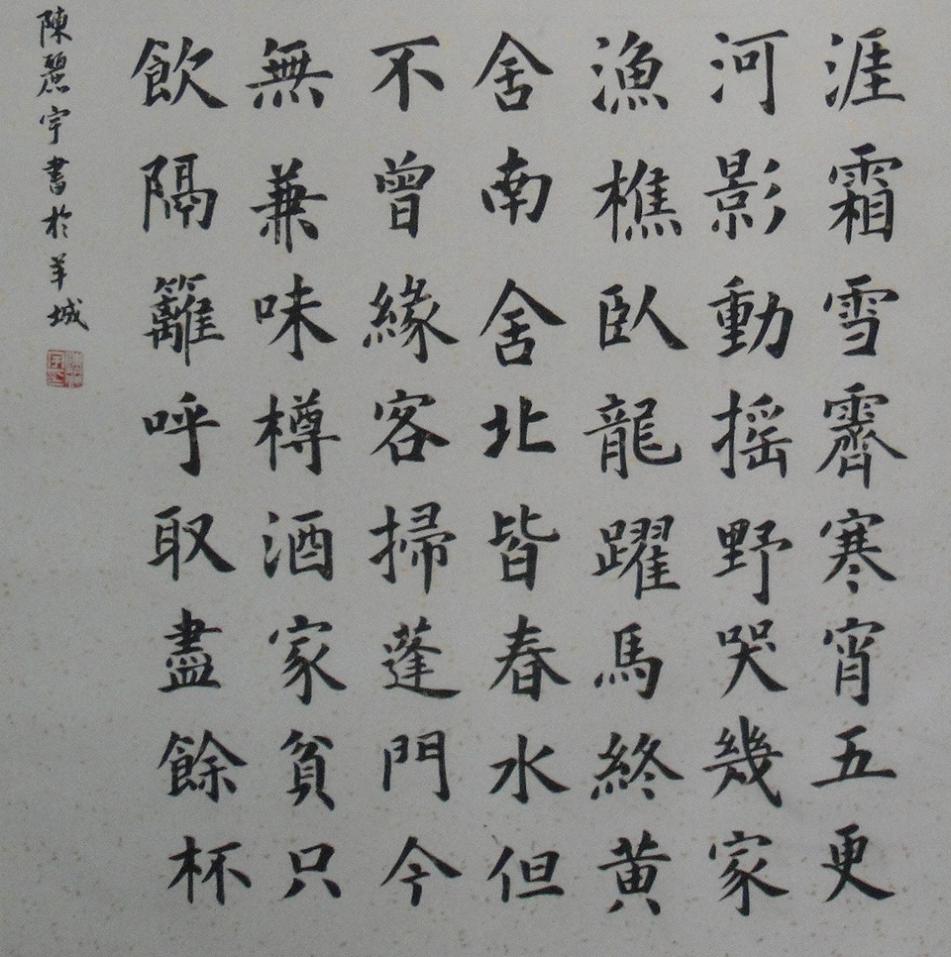 涯霜雪霽寒宵五更
河影動搖野哭幾家
漁樵臥龍躍馬終黃
舍南舍北皆春水但
不曾緣客掃蓬門今
無兼味樽酒家貧只
飲隔籬呼取盡餘杯
陳麗宇書於羊城